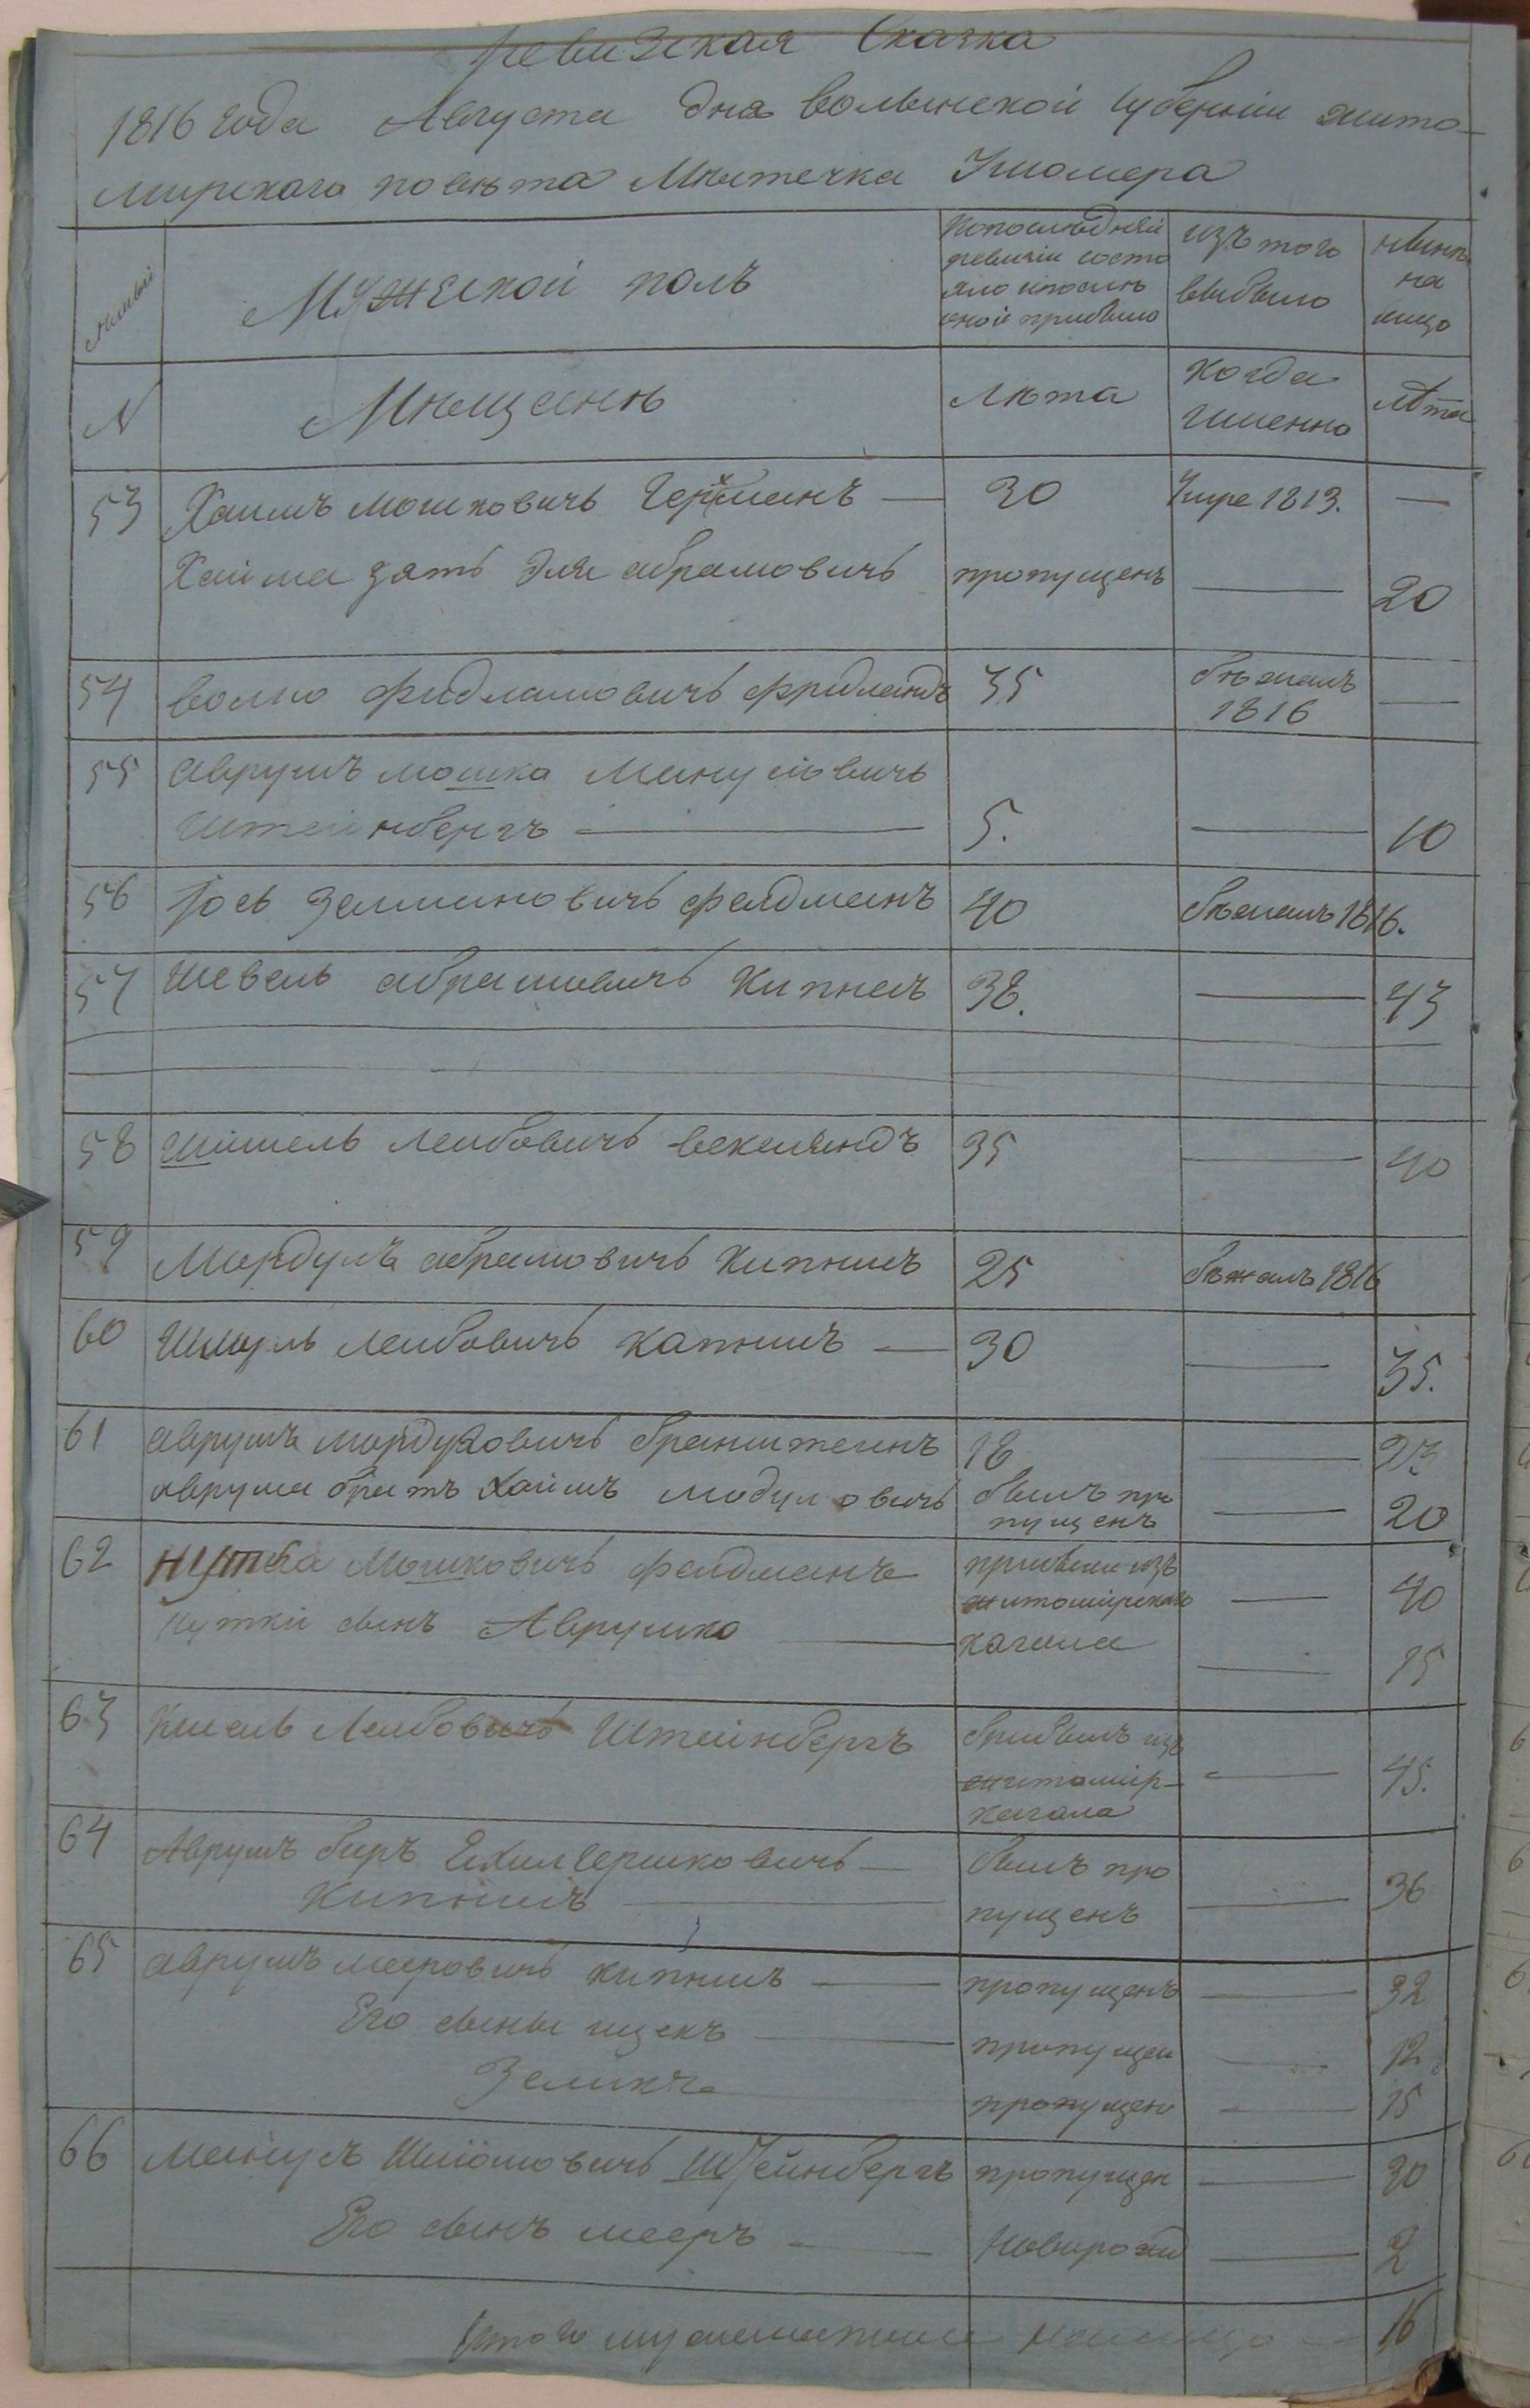 Ревизская Сказка
1816 года Августа дня Волынской губернии Жито-
мирского повѣта Мѣстечка Ушомера
Мужеской полъ
По последней ревизiи состояло и после оной прибыло
изъ того выбыло
нынѣ на лицо
N
Мѣщанѣ
Лѣта
Когда Именно
лѣта
53 Хаимъ Мошковичъ Германъ — 30 Умре 1813. —
Хаима зять Эля абрамовичъ пропущенъ — 20
54 Волко Фидламовичъ Фридландъ 35 бѣжалъ 1816 —
55 Аврумъ Мошка Манусовичъ
Штейнбергъ — 5. — 10
56 Iось Залмановичъ Фелдманъ 40 бѣжалъ 1816.
57 Шевель абрамовичъ Кипнсъ 38. — 43
58 Шimель Лейбовичъ 35 — 40
59 абрамовичъ Кипнисъ 25 бѣжалъ 1816
60 Шмуль Лейбовичъ Капнисъ — 30 — 35.
61 Аврумъ Мордуховичъ 18 — 23
аврума братъ Хаимъ былъ пропущенъ — 20
62 Нутка Мошковичъ Фелдманъ прибыли изъ — 40
Нутки сынъ Аврумко — житомирского кагала — 15
63 Кисель Лейбовичъ Штейнбергъ Прибылъ изъ житомир- кагала — 45.
64 Аврумъ беръ Гершковичъ — былъ про
Кипнисъ — пущенъ — 36
65 Аврумъ мееровичъ Кипнисъ — пропущенъ — 32
Его сыны ицекъ — пропущен — 12
Зеликъ пропущен — 15
66 Манусъ Шлiомовичъ Штейнбергъ пропущен — 30
Его сынъ мееръ — Новорожд — 2
Итого мужеска пола на лицо — 16